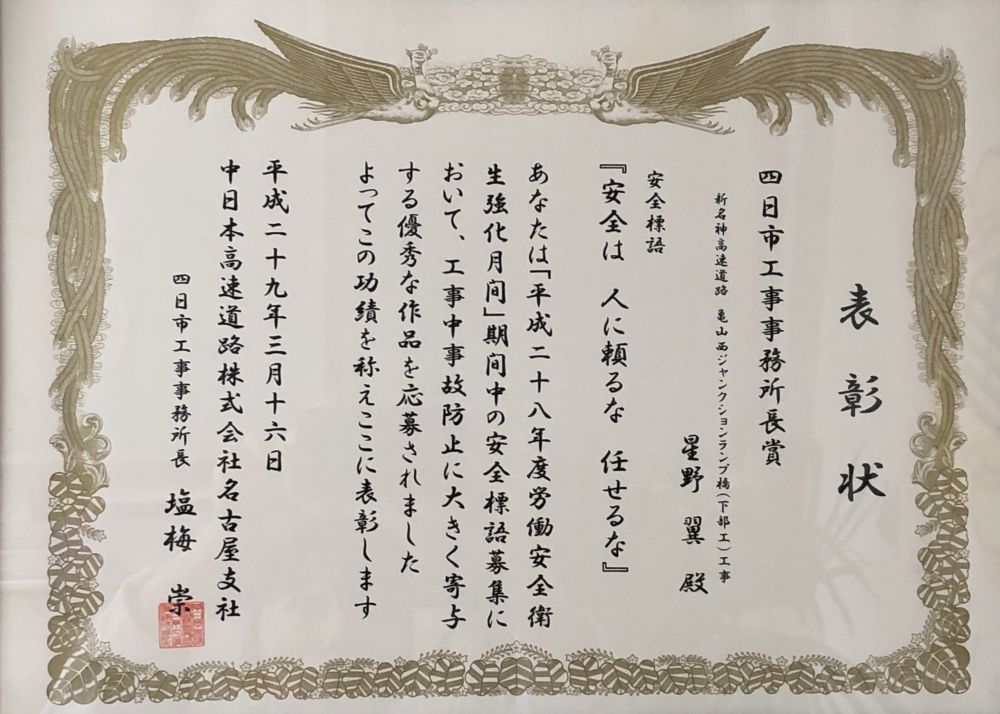 表彰状
四日市工事事務所長賞
新名神高速道路 亀山西ジャンクションランプ橋(下部工)工事
星野 翼 殿
安全標語
『安全は 人に頼るな 任せるな』
あなたは「平成二十八年度労働安全衛
生強化月間」期間中の安全標語募集に
おいて、工事中事故防止に大きく寄与
する優秀な作品を応募されました
よってこの功績を称えここに表彰します
平成二十九年三月十六日
中日本高速道路株式会社名古屋支社
四日市工事事務所長 塩梅 崇